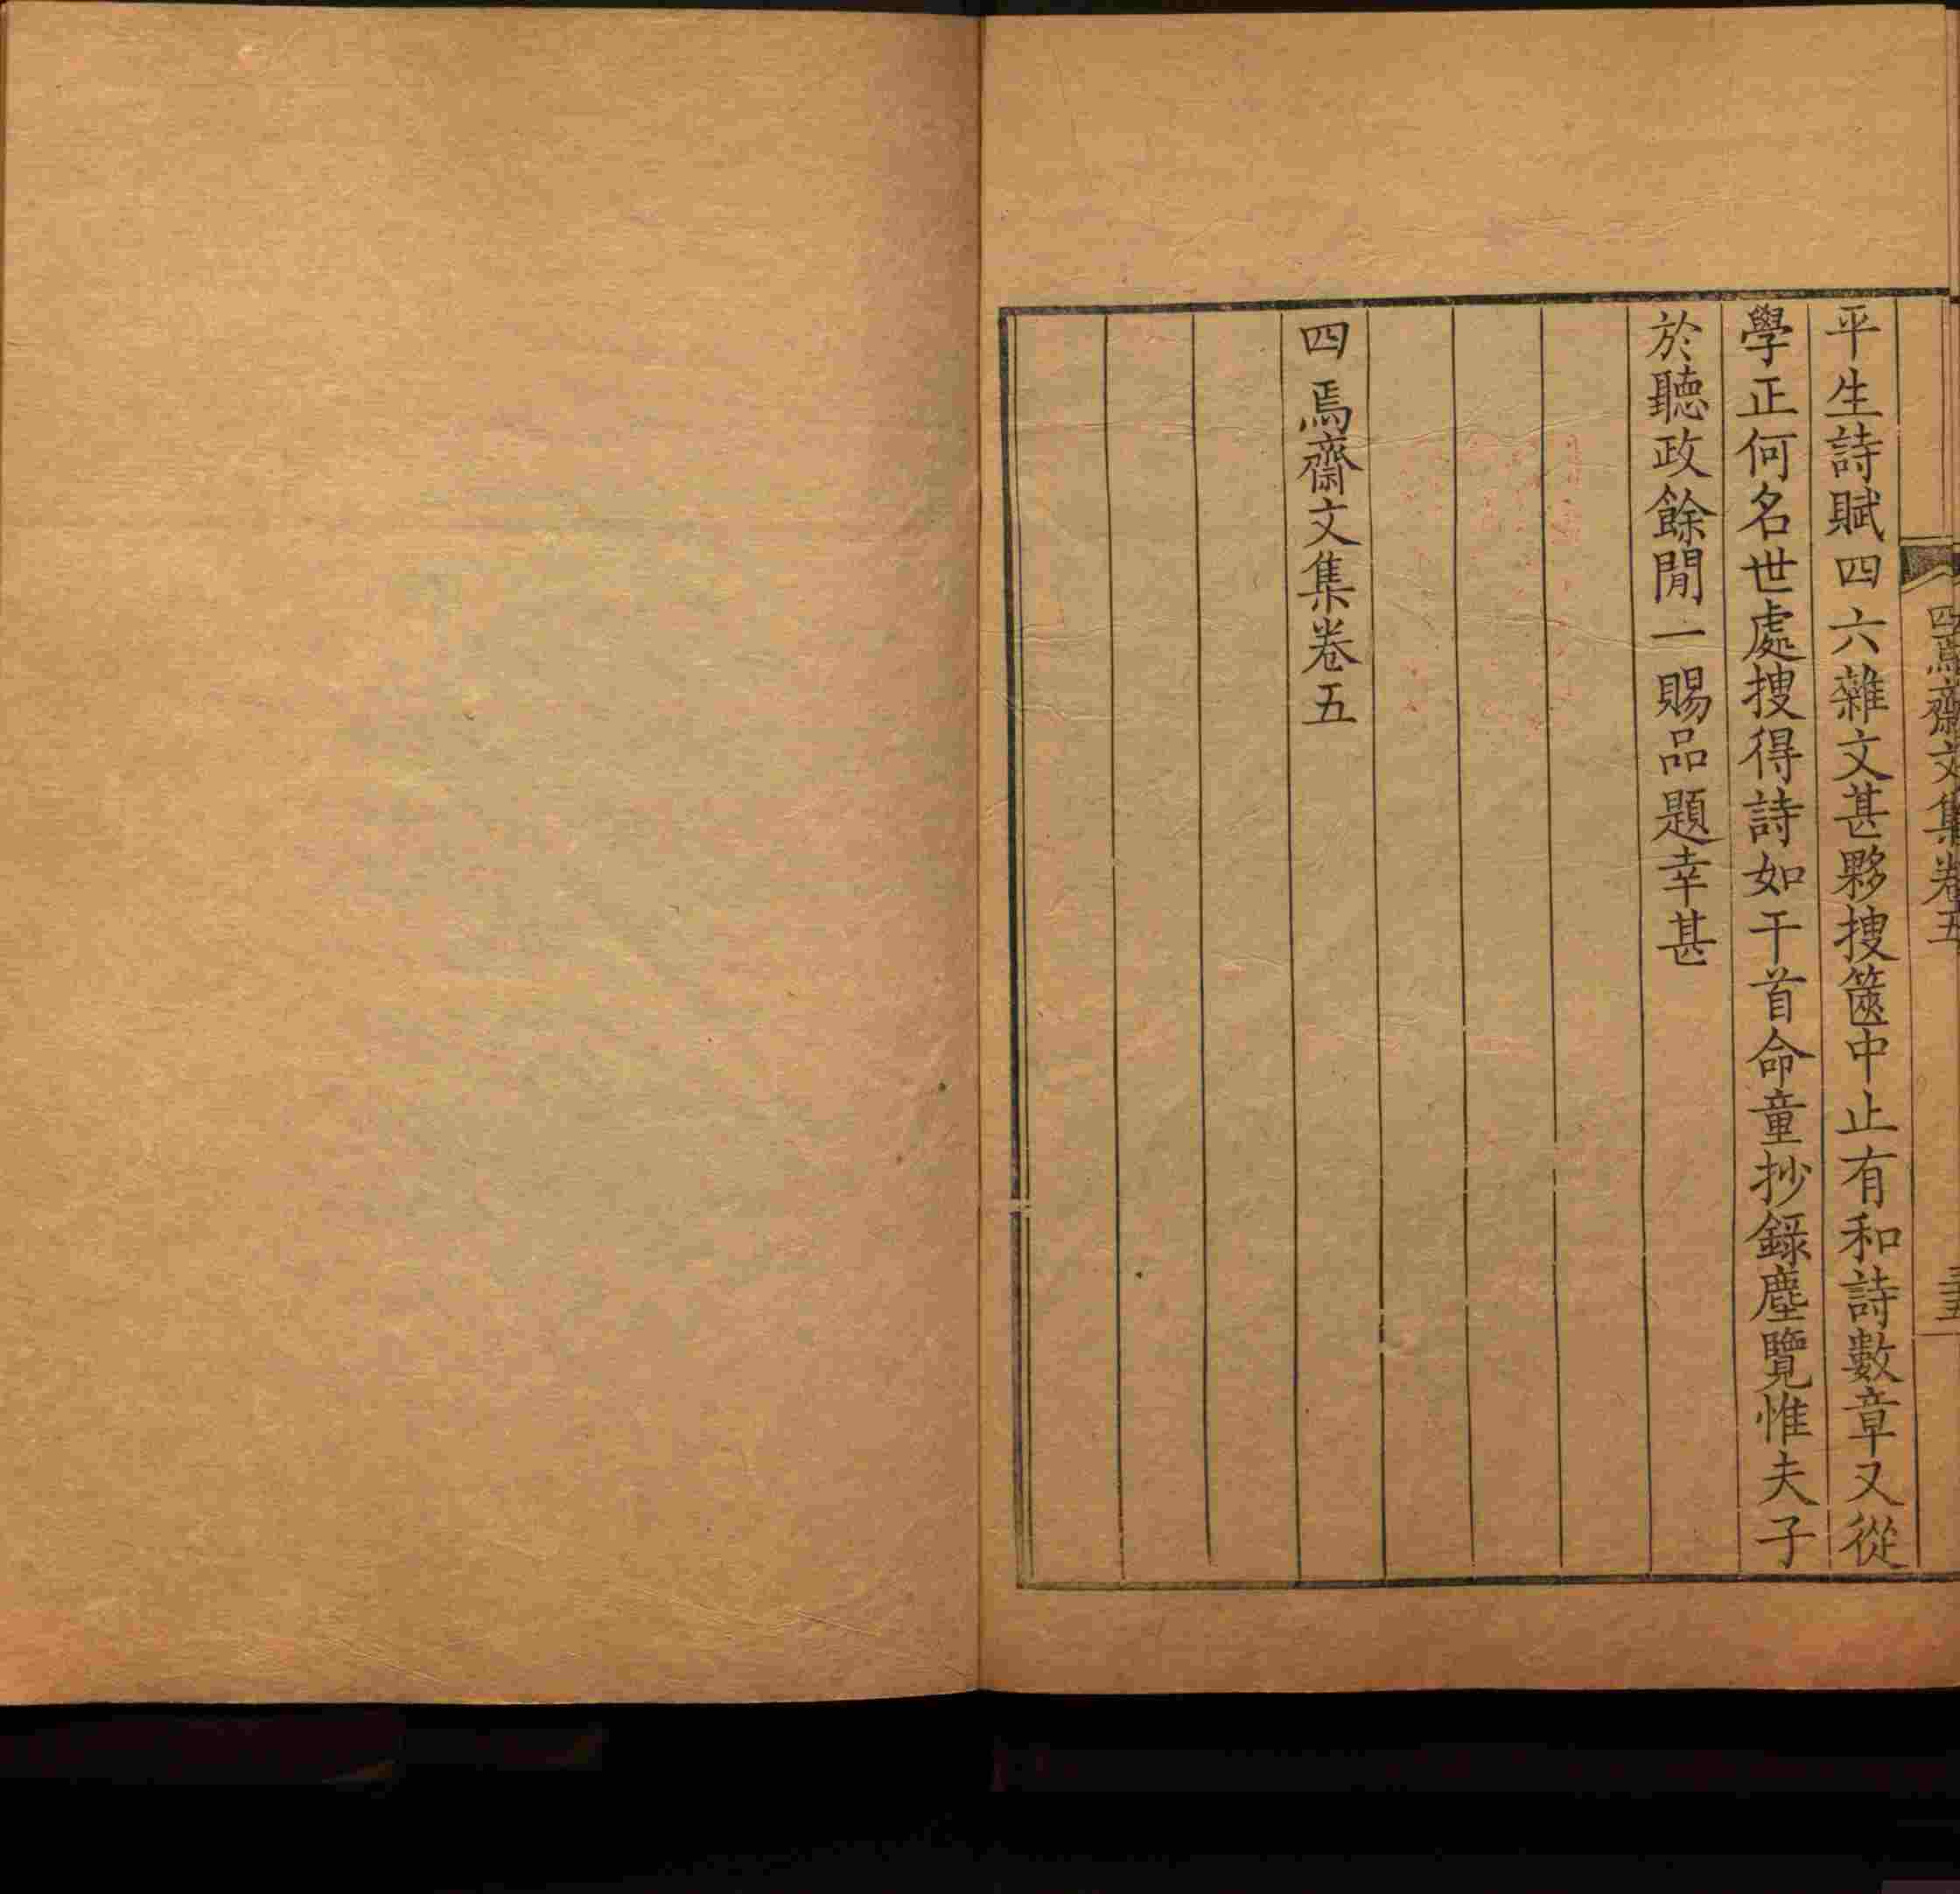 四焉齋文集卷五
平生詩賦四六雜文甚夥搜篋中止有和詩數章又從
學正何名世處搜得詩如干首命童抄錄塵覽惟夫子
於聽政餘閒一賜品題幸甚
四焉齋文集卷五